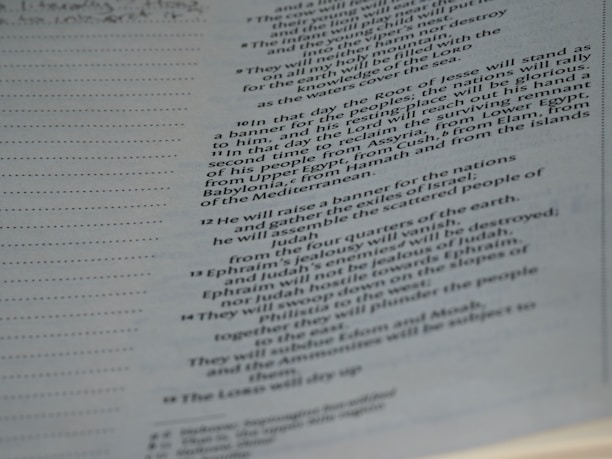 and a li
7 The cow will feed
their young will
and the lion will eat
8 The infant will play
and the young child will put
into the viper's nest.
9 They will neither harm nor destroy
on all my holy mountain,
for the earth will be filled with the
knowledge of the LORD
as the waters cover the sea.
10 In that day the Root of Jesse will stand as
a banner for the peoples; the nations will rally
to him, and his resting-place will be glorious.
11 In that day the Lord will reach out his hand a
second time to reclaim the surviving remnant
of his people from Assyria, from Lower Egypt,
from Upper Egypt, from Cush, b from Elam, from
Babylonia, c from Hamath and from the islands
of the Mediterranean.
12 He will raise a banner for the nations
and gather the exiles of Israel;
he will assemble the scattered people of
Judah
from the four quarters of the earth.
13 Ephraim's jealousy will vanish,
and Judah's enemies d will be destroyed;
Ephraim will not be jealous of Judah,
nor Judah hostile towards Ephraim.
14 They will swoop down on the slopes of
Philistia to the west;
together they will plunder the people
to the east.
They will subdue Edom and Moab,
and the Ammonites will be subject to
them.
15 The LORD will dry up